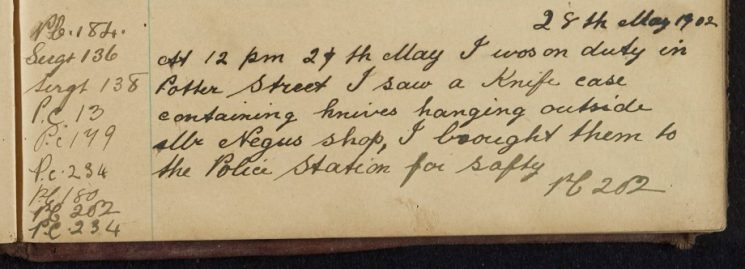 28th May 1902
P.C. 184.
Sergt 136
Sergt 138
P.C 13
P.c 179
P.c. 234
PC 180
PC 202
P.C. 234
At 12 pm 27th May I was on duty in
Potter Street I saw a Knife case
containing knives hanging outside
Mr Negus shop, I brought them to
the Police Station for safty
PC 202